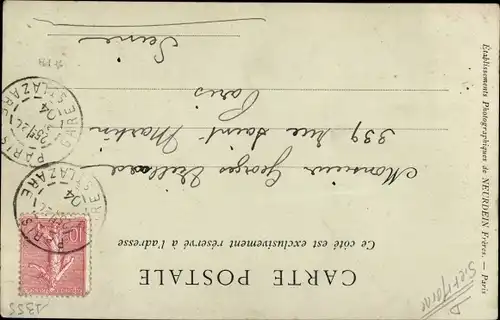 CARTE POSTALE
Ce côté est exclusivement réservé à l'adresse
Monsieur Georges
339 rue Saint Martin
Paris
Seine
PARIS
GARE ST LAZARE
04
PARIS
GARE ST LAZARE
04
10
1355
Etablissements Photographiques de NEURDEIN Frères. — Paris